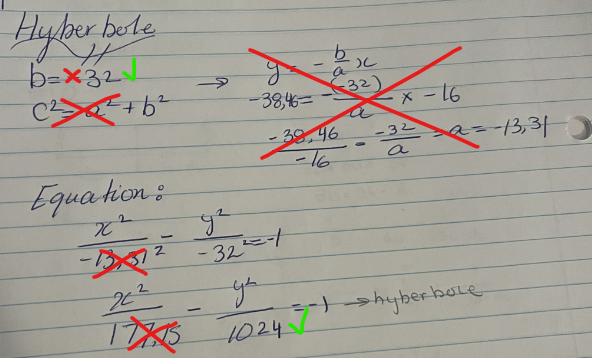 Hyberbole
b= 32
c² = a² + b²
→ y = - b/a x
-38,46 = - (-32)/a × -16
-38,46/-16 = -32/a = a = -13,31
Equation:
x²/-13,31² - y²/-32² = -1
x²/177,15 - y²/1024 = -1 → hyberbole